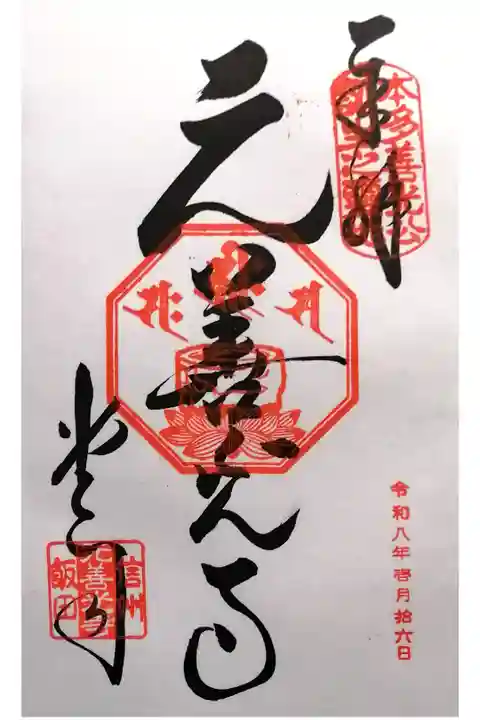 奉拝
本多善光公
元善光寺
堂司
信州
元善光寺
飯田
令和八年壱月拾六日